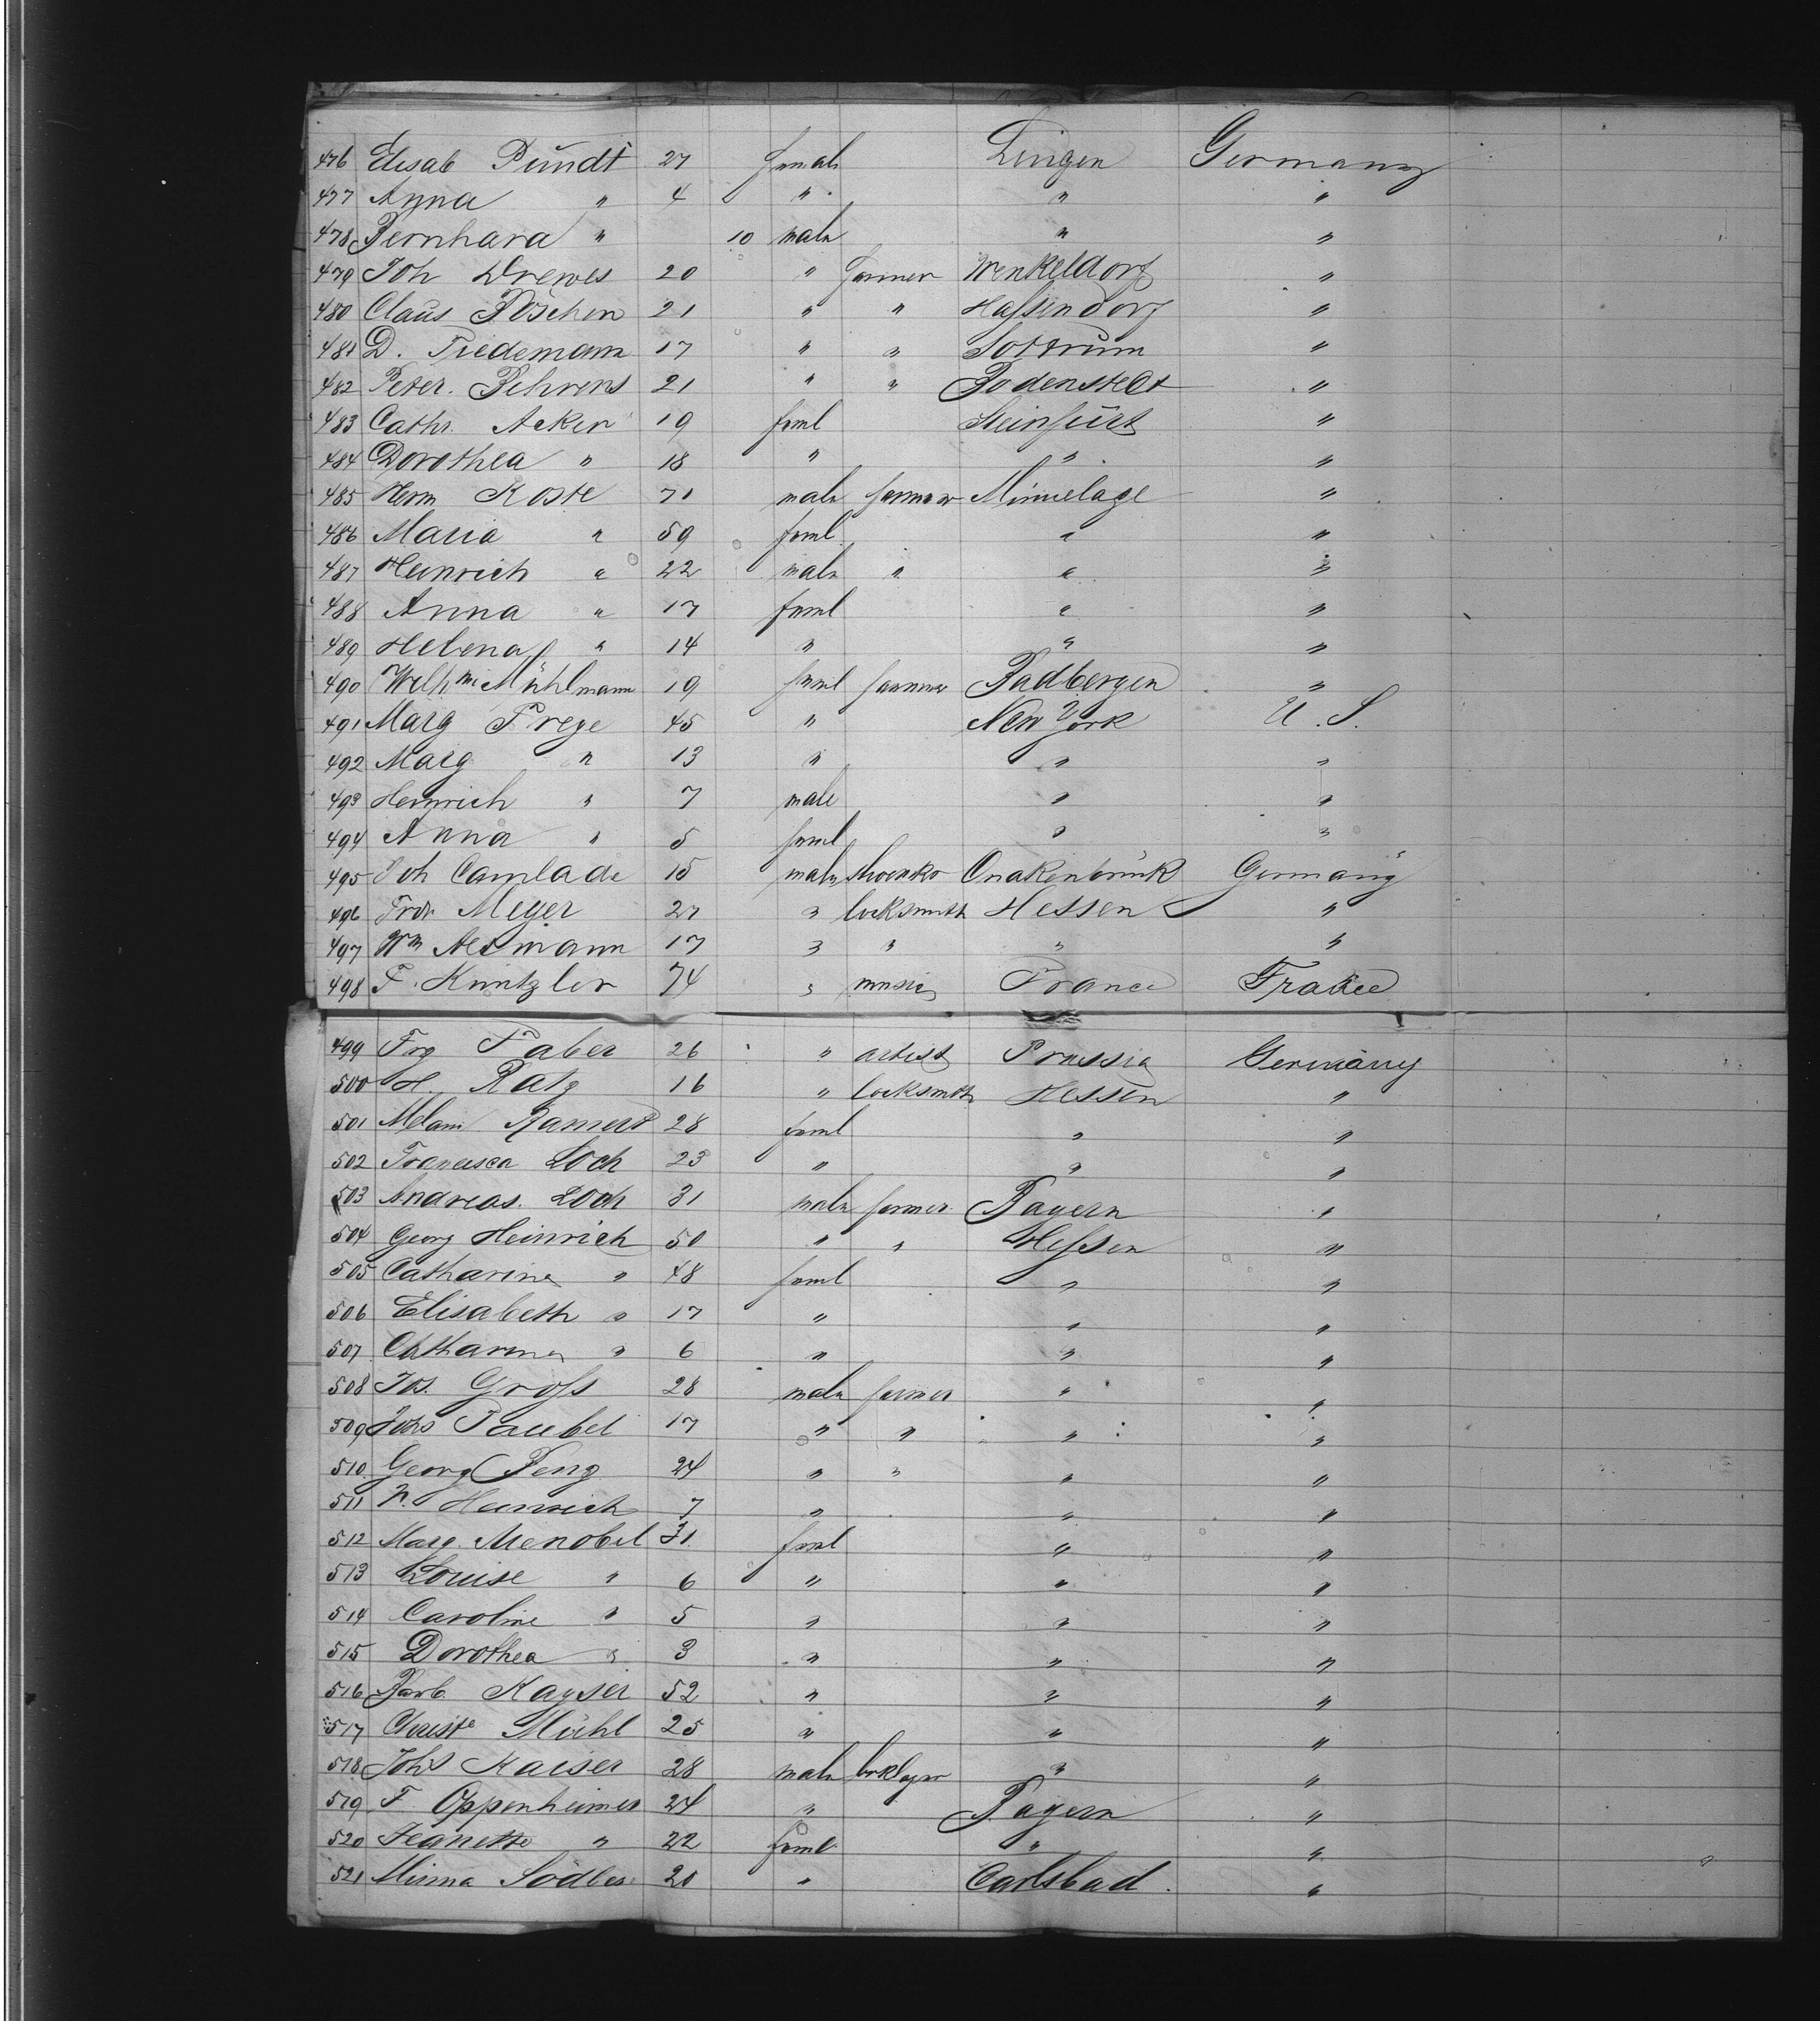 476 Elisab Pundt 27 female Lingen Germany
477 Anna " 4 " " "
478 Bernhard " 10 male " "
479 Joh Drewes 20 " farmer Winkeldorf "
480 Claus Böschen 21 " " Hassendorf "
481 D. Tiedemann 17 " " Sottrum "
482 Peter. Behrens 21 " " Bodenstedt "
483 Cathr. Acker 19 feml Steinfurt "
484 Dorothea " 18 " " "
485 Herm Koste 71 male farmer Mimelage "
486 Maria " 59 feml " "
487 Heinrich " 22 male " " "
488 Anna " 17 feml " "
489 Helena " 14 " " "
490 Wilhmi Mühlmann 19 feml farmer Badbergen "
491 Marg Frege 45 " New York U. S.
492 Marg " 13 " " "
493 Heinrich " 7 male " "
494 Anna " 5 feml " "
495 Joh 15 male Quakenbrück Germany
496 Frdr. Meyer 27 " locksmith Hessen "
497 Wm 17 " " " "
498 F. Kuntzler 74 " music France France
499 Faber 26 " artist Prussia Germany
500 H. Ratz 16 " locksmith Hessen "
501 Melani 28 feml " "
502 Francisca Loch 23 " " "
503 Andreas. Loch 31 male farmer Bayern "
504 Georg Heinrich 50 " " Hessen "
505 Catharine " 48 feml " "
506 Elisabeth " 17 " " "
507 Catharina " 6 " " "
508 Jos. Gross 28 male farmer " "
509 Johs Taubel 17 " " " "
510 Georg Beng 24 " " " "
511 Heinrich 7 " " "
512 Marg. Menobel 31. feml " "
513 Louise " 6 " " "
514 Caroline " 5 " " "
515 Dorothea " 3 " " "
516 Barb. Kayser 52 " " "
517 Christe Möhl 25 " " "
518 Johs Kaiser 28 male " "
519 F Oppenheimer 24 " Bayern "
520 Jeanette " 22 feml " "
521 Minna 20 " Carlsbad. "